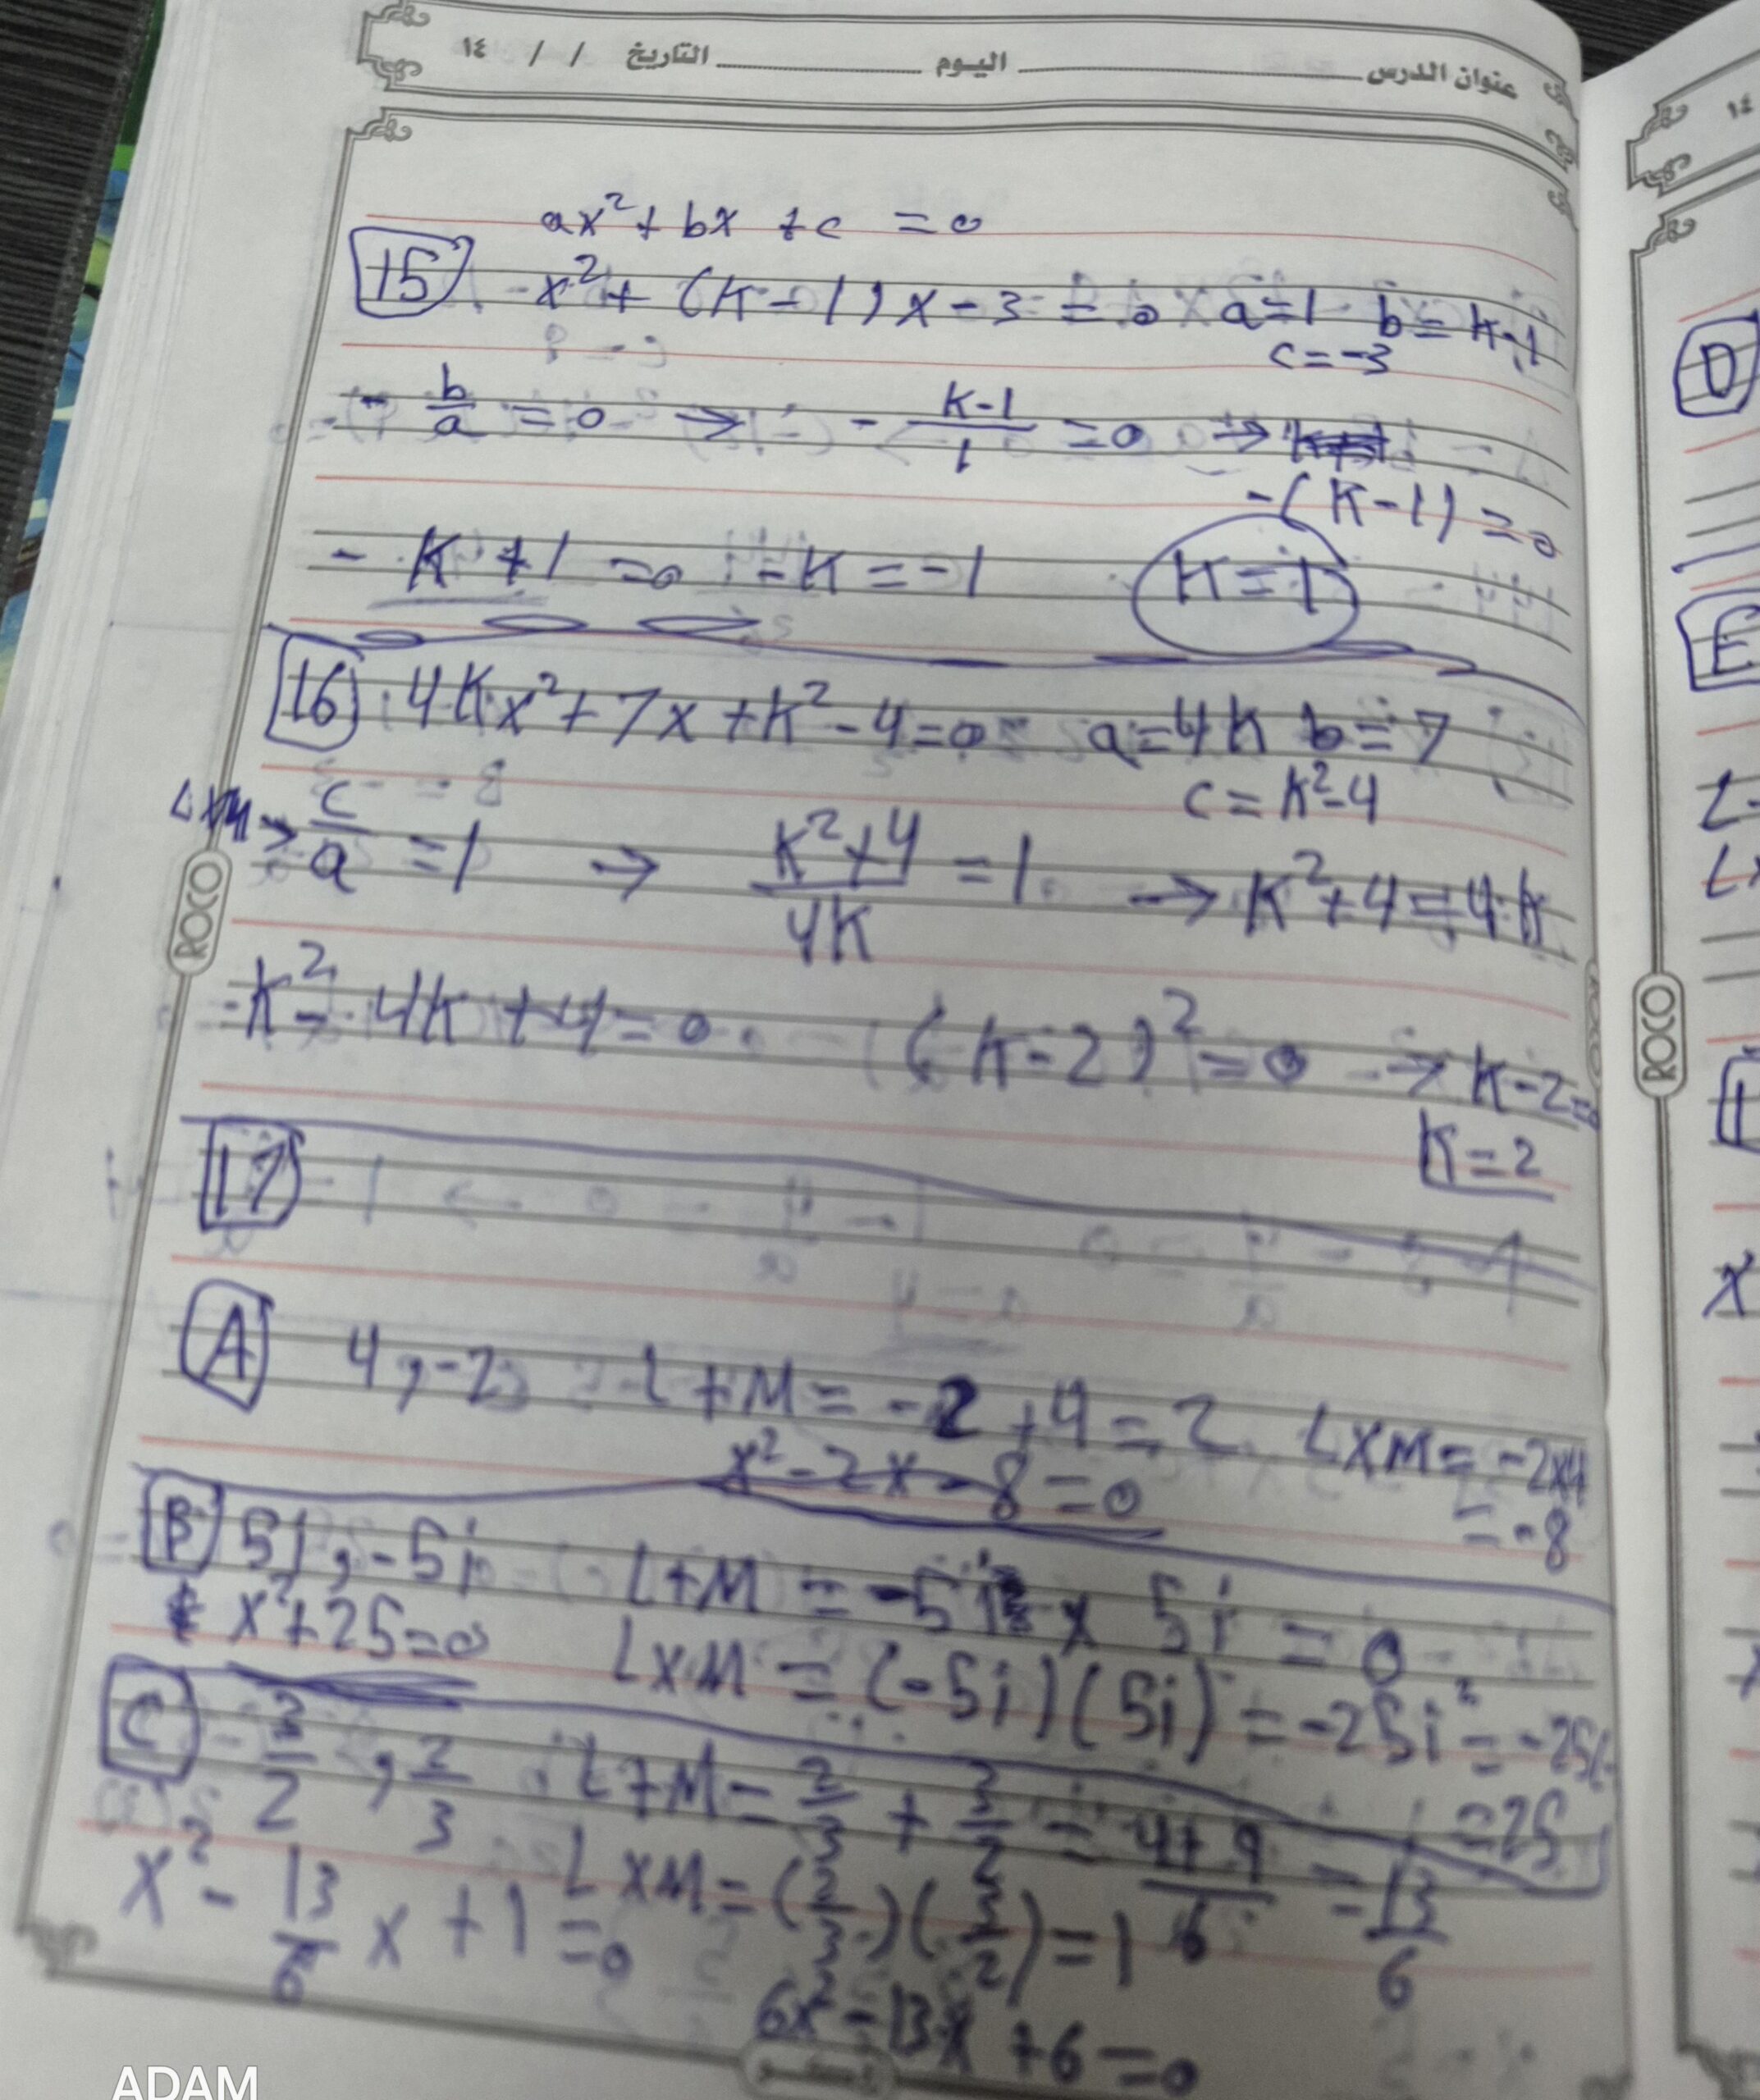 عنوان الدرس اليوم التاريخ / / ١٤
ax² + bx + c = 0
15 x² + (k - 1) x - 3 = 0 a = 1 b = k - 1
c = -3
- b/a = 0 → - k-1/1 = 0 →
-(k-1) = 0
- k + 1 = 0 - k = -1 k = 1
16 4kx² + 7x + k² - 4 = 0 a = 4k b = 7
c = k² - 4
L×M → c/a = 1 → k²+4/4k = 1 → k² + 4 = 4k
k² - 4k + 4 = 0 (k - 2)² = 0 → k - 2 = 0
k = 2
17
A 4 , -2 L + M = -2 + 4 = 2 L×M = -2×4
x² - 2x - 8 = 0 = -8
B 5i , -5i L+M = -5i × 5i = 0
x² + 25 = 0 L×M = (-5i)(5i) = -25i² = -25(-
= 25
C 3/2 , 2/3 L+M = 2/3 + 3/2 = 4+9/6 = 13/6
x² - 13/6 x + 1 = 0 L×M = (2/3)(3/2) = 1
6x² - 13x + 6 = 0
ROCO
ROCO
١٤
D
E
L
X
ADAM